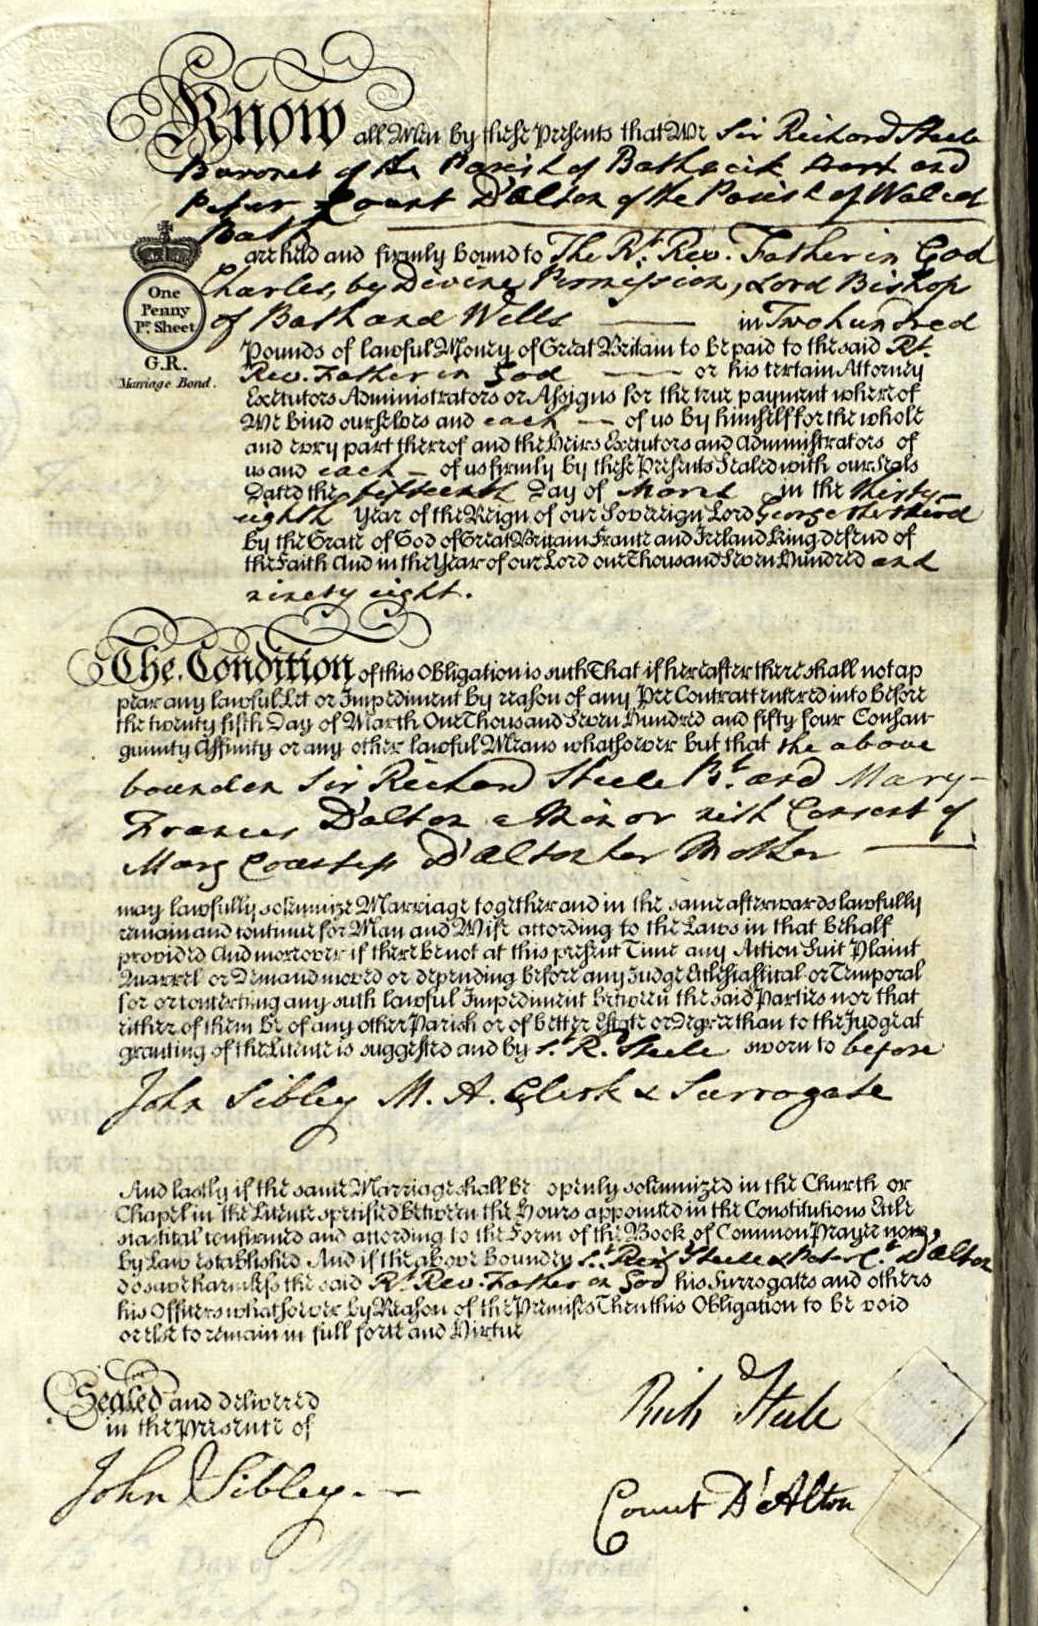 Know all Men by these Presents that We Sir Richard Steele
Baronet of the Parish of Bathwick and
Peter Count D'Alton of the Parish of Walcot
Bath
are held and firmly bound to The Rt. Rev. Father in God
Charles, by Divine Permission, Lord Bishop
of Bath and Wells in Two hundred
One
Penny
Pr. Sheet
G.R.
Marriage Bond.
Pounds of lawful Money of Great Britain to be paid to the said Rt.
Rev. Father in God or his certain Attorney
Executors Administrators or Assigns for the true payment whereof
We bind ourselves and each of us by himself for the whole
and every part thereof and the Heirs Executors and Administrators of
us and each of us firmly by these Presents Sealed with our Seals
Dated the fifteenth Day of March in the thirty
eighth Year of the Reign of our Sovereign Lord George the third
by the Grace of God of Great Britain France and Ireland King defend of
the Faith And in the Year of our Lord one Thousand Seven Hundred and
ninety eight.
The Condition of this Obligation is such That if hereafter there shall not ap
pear any lawful Let or Impediment by reason of any Pre Contract entered into before
the twenty fifth Day of March One Thousand Seven Hundred and fifty four Consan
guinity Affinity or any other lawful Means whatsoever but that the above
bounden Sir Richard Steele Bt. and Mary
Frances D'alton a Minor with Consent of
Mary Countess D'Alton her Mother
may lawfully solemnize Marriage together and in the same afterwards lawfully
remain and continue for Man and Wife according to the Laws in that behalf
provided And moreover if there be not at this present Time any Action Suit Plaint
Quarrel or Demand moved or depending before any Judge Ecclesiastical or Temporal
for or concerning any such lawful Impediment between the said Parties nor that
either of them be of any other Parish or of better Estate or Degree than to the Judge at
granting of the Licence is suggested and by Sr. Rd. Steele sworn to before
John Sibley M. A. Clerk & Surrogate
And lastly if the same Marriage shall be openly solemnized in the Church or
Chapel in the Licence specified between the Hours appointed in the Constitutions Eccle
siastical confirmed and according to the Form of the Book of Common Prayer now,
by Law established And if the above Bounden Sr. Richd Steele & Peter Ct. D'Alton
do save harmless the said Rt. Rev. Father in God his Surrogates and others
his Officers whatsoever by Reason of the Premises Then this Obligation to be void
or else to remain in full force and Virtue
Sealed and delivered
in the presence of
John Sibley.
Rich Steele
Count D'Alton